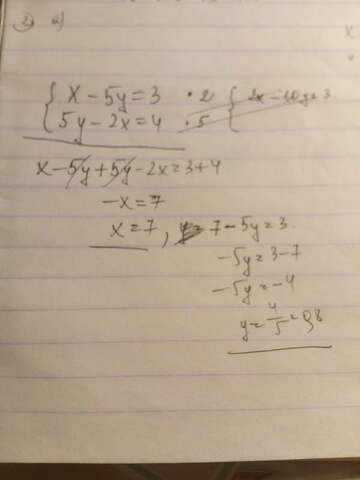 2) a)
x - 5y = 3 · 2 { 2x - 10y = 3
5y - 2x = 4 · 5
x - 5y + 5y - 2x = 3 + 4
-x = 7
x = 7, y = 7 - 5y = 3.
-5y = 3 - 7
-5y = -4
y = 4/5 = 0,8